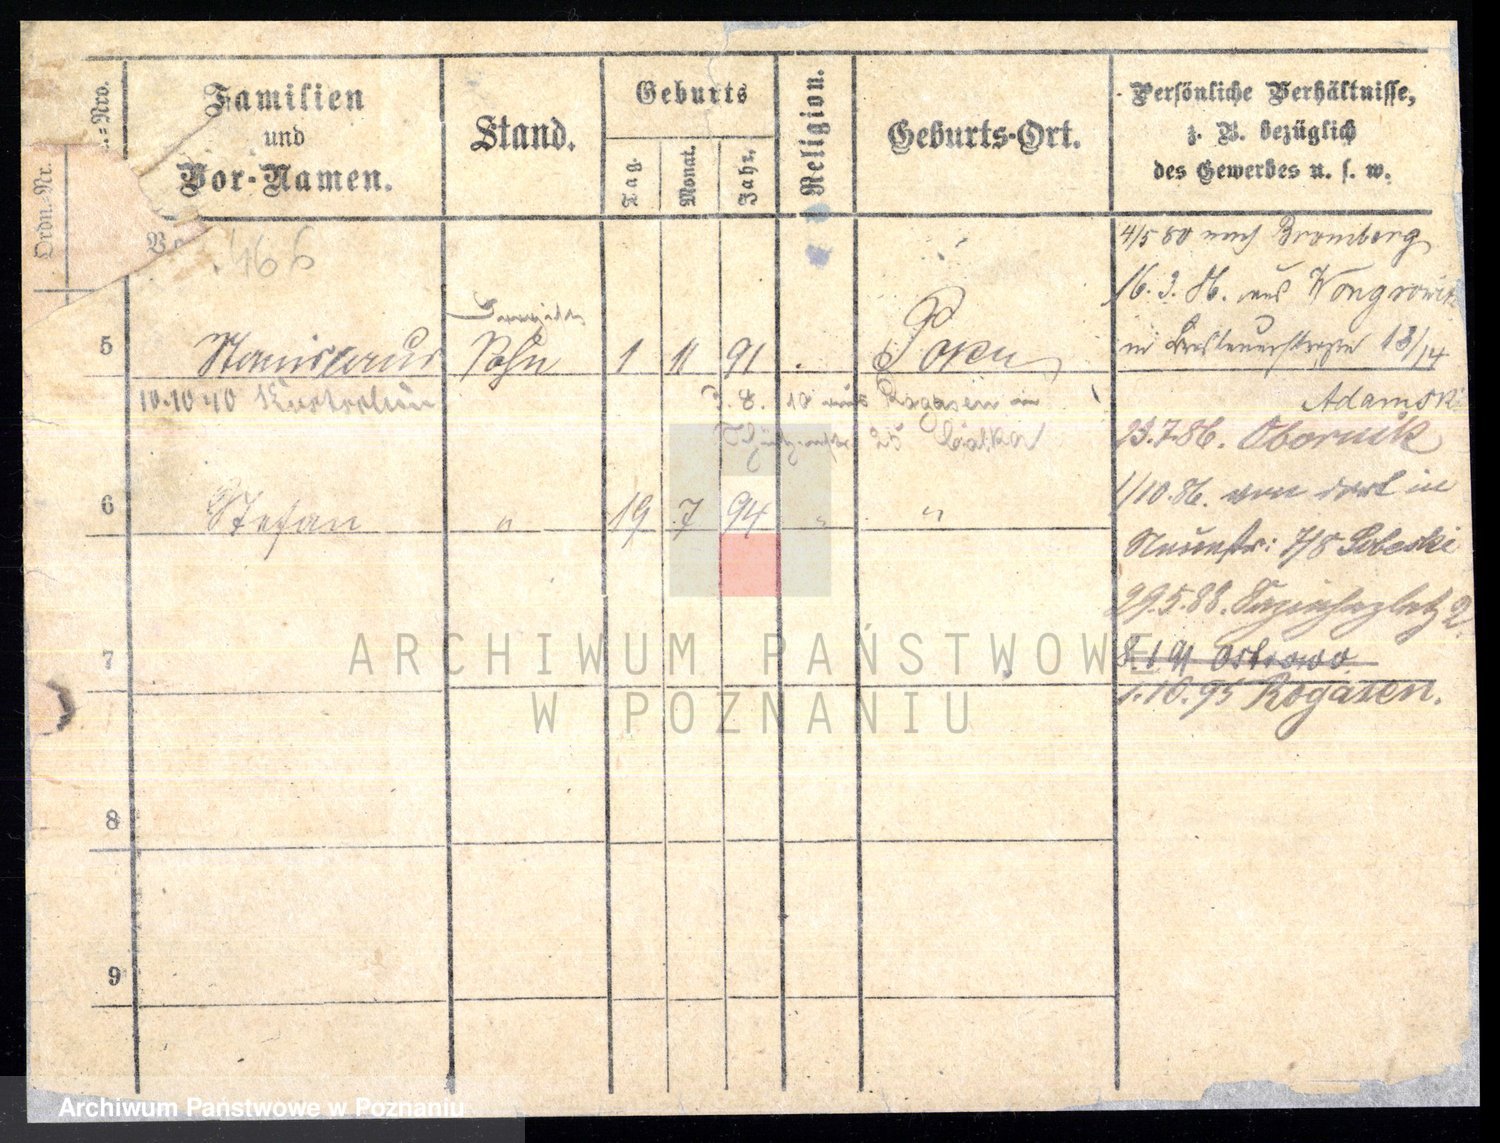 Ordn.-Nr.
.=Nro.
Familien
und
Vor-Namen.
Stand.
Geburts
Tag.
Monat.
Jahr.
Religion.
Geburts-Ort.
Persönliche Verhältnisse,
z. B. bezüglich
des Gewerbes u. s. w.
466
4/5 80 nach Bromberg
16.3.86. aus Wongrowitz
in 13/14
5 Stanislaus Sohn 1 11 91 Posen
Adamski
10.10 40
3.8.10 aus Rogasen in
25 Bätkal
23.7.86. Obornik
6 Stefan " 19 7 94 " "
1/10.86. von dort in
Neuestr: 7/8 Sobeski
29.5.88. 2.
7
8.1 91 Ostrowo
1.10.95 Rogasen.
8
9
ARCHIWUM PAŃSTWOWE
W POZNANIU
Archiwum Państwowe w Poznaniu